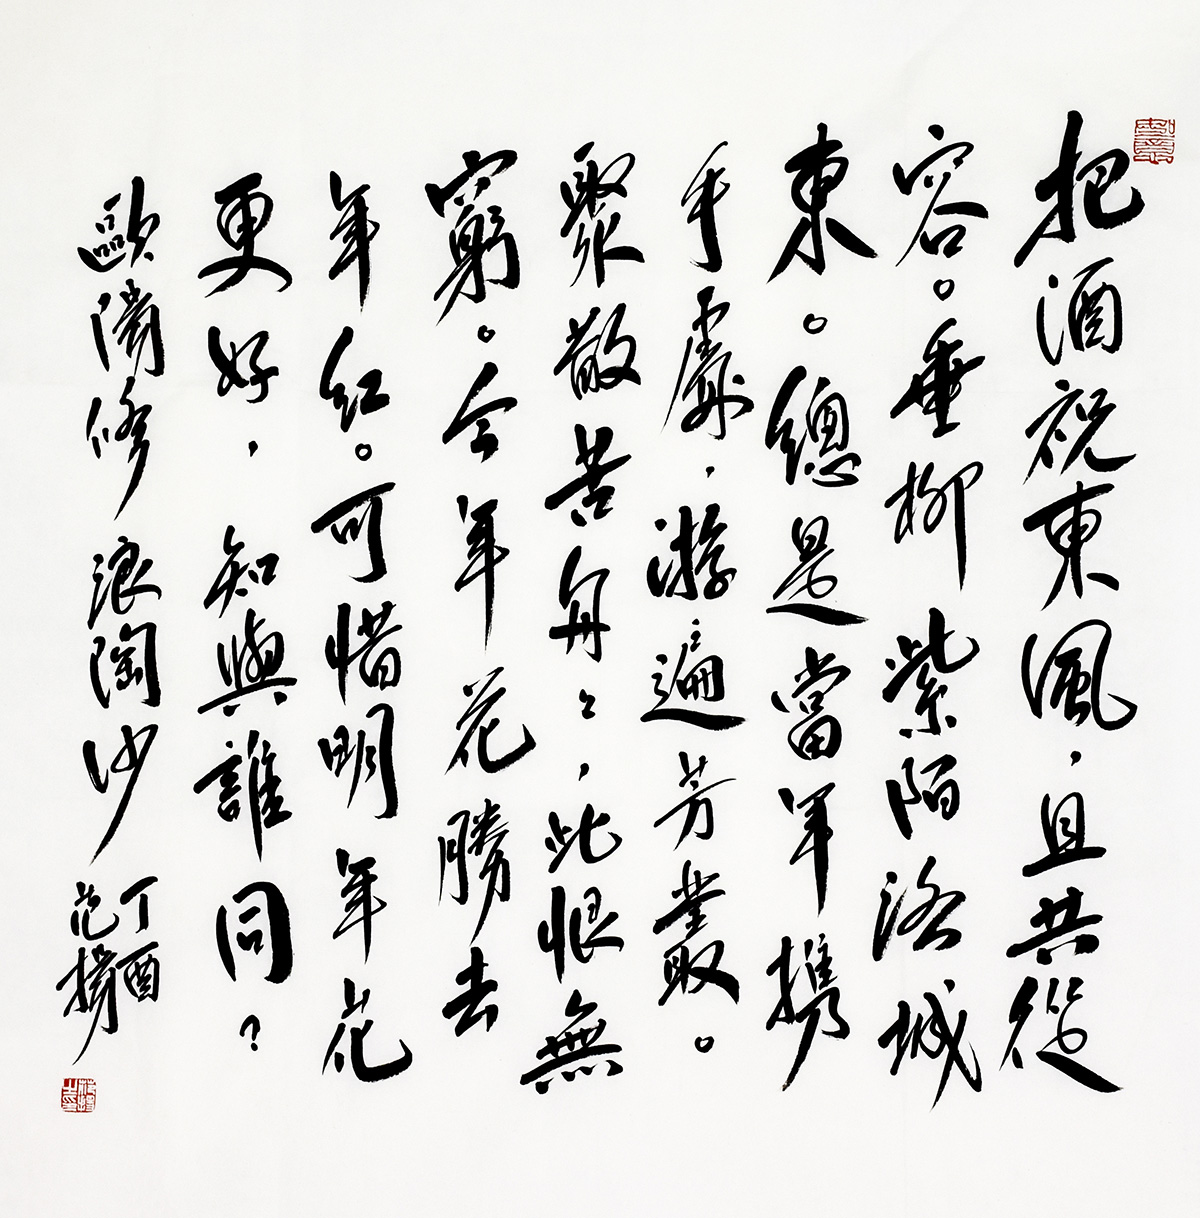 把酒祝東風，且共從
容。垂柳紫陌洛城
東。總是當年携
手處，游遍芳叢。
聚散苦匆〻，此恨無
窮。今年花勝去
年紅。可惜明年花
更好，知與誰同？
歐陽修 浪陶沙
丁酉
范揚